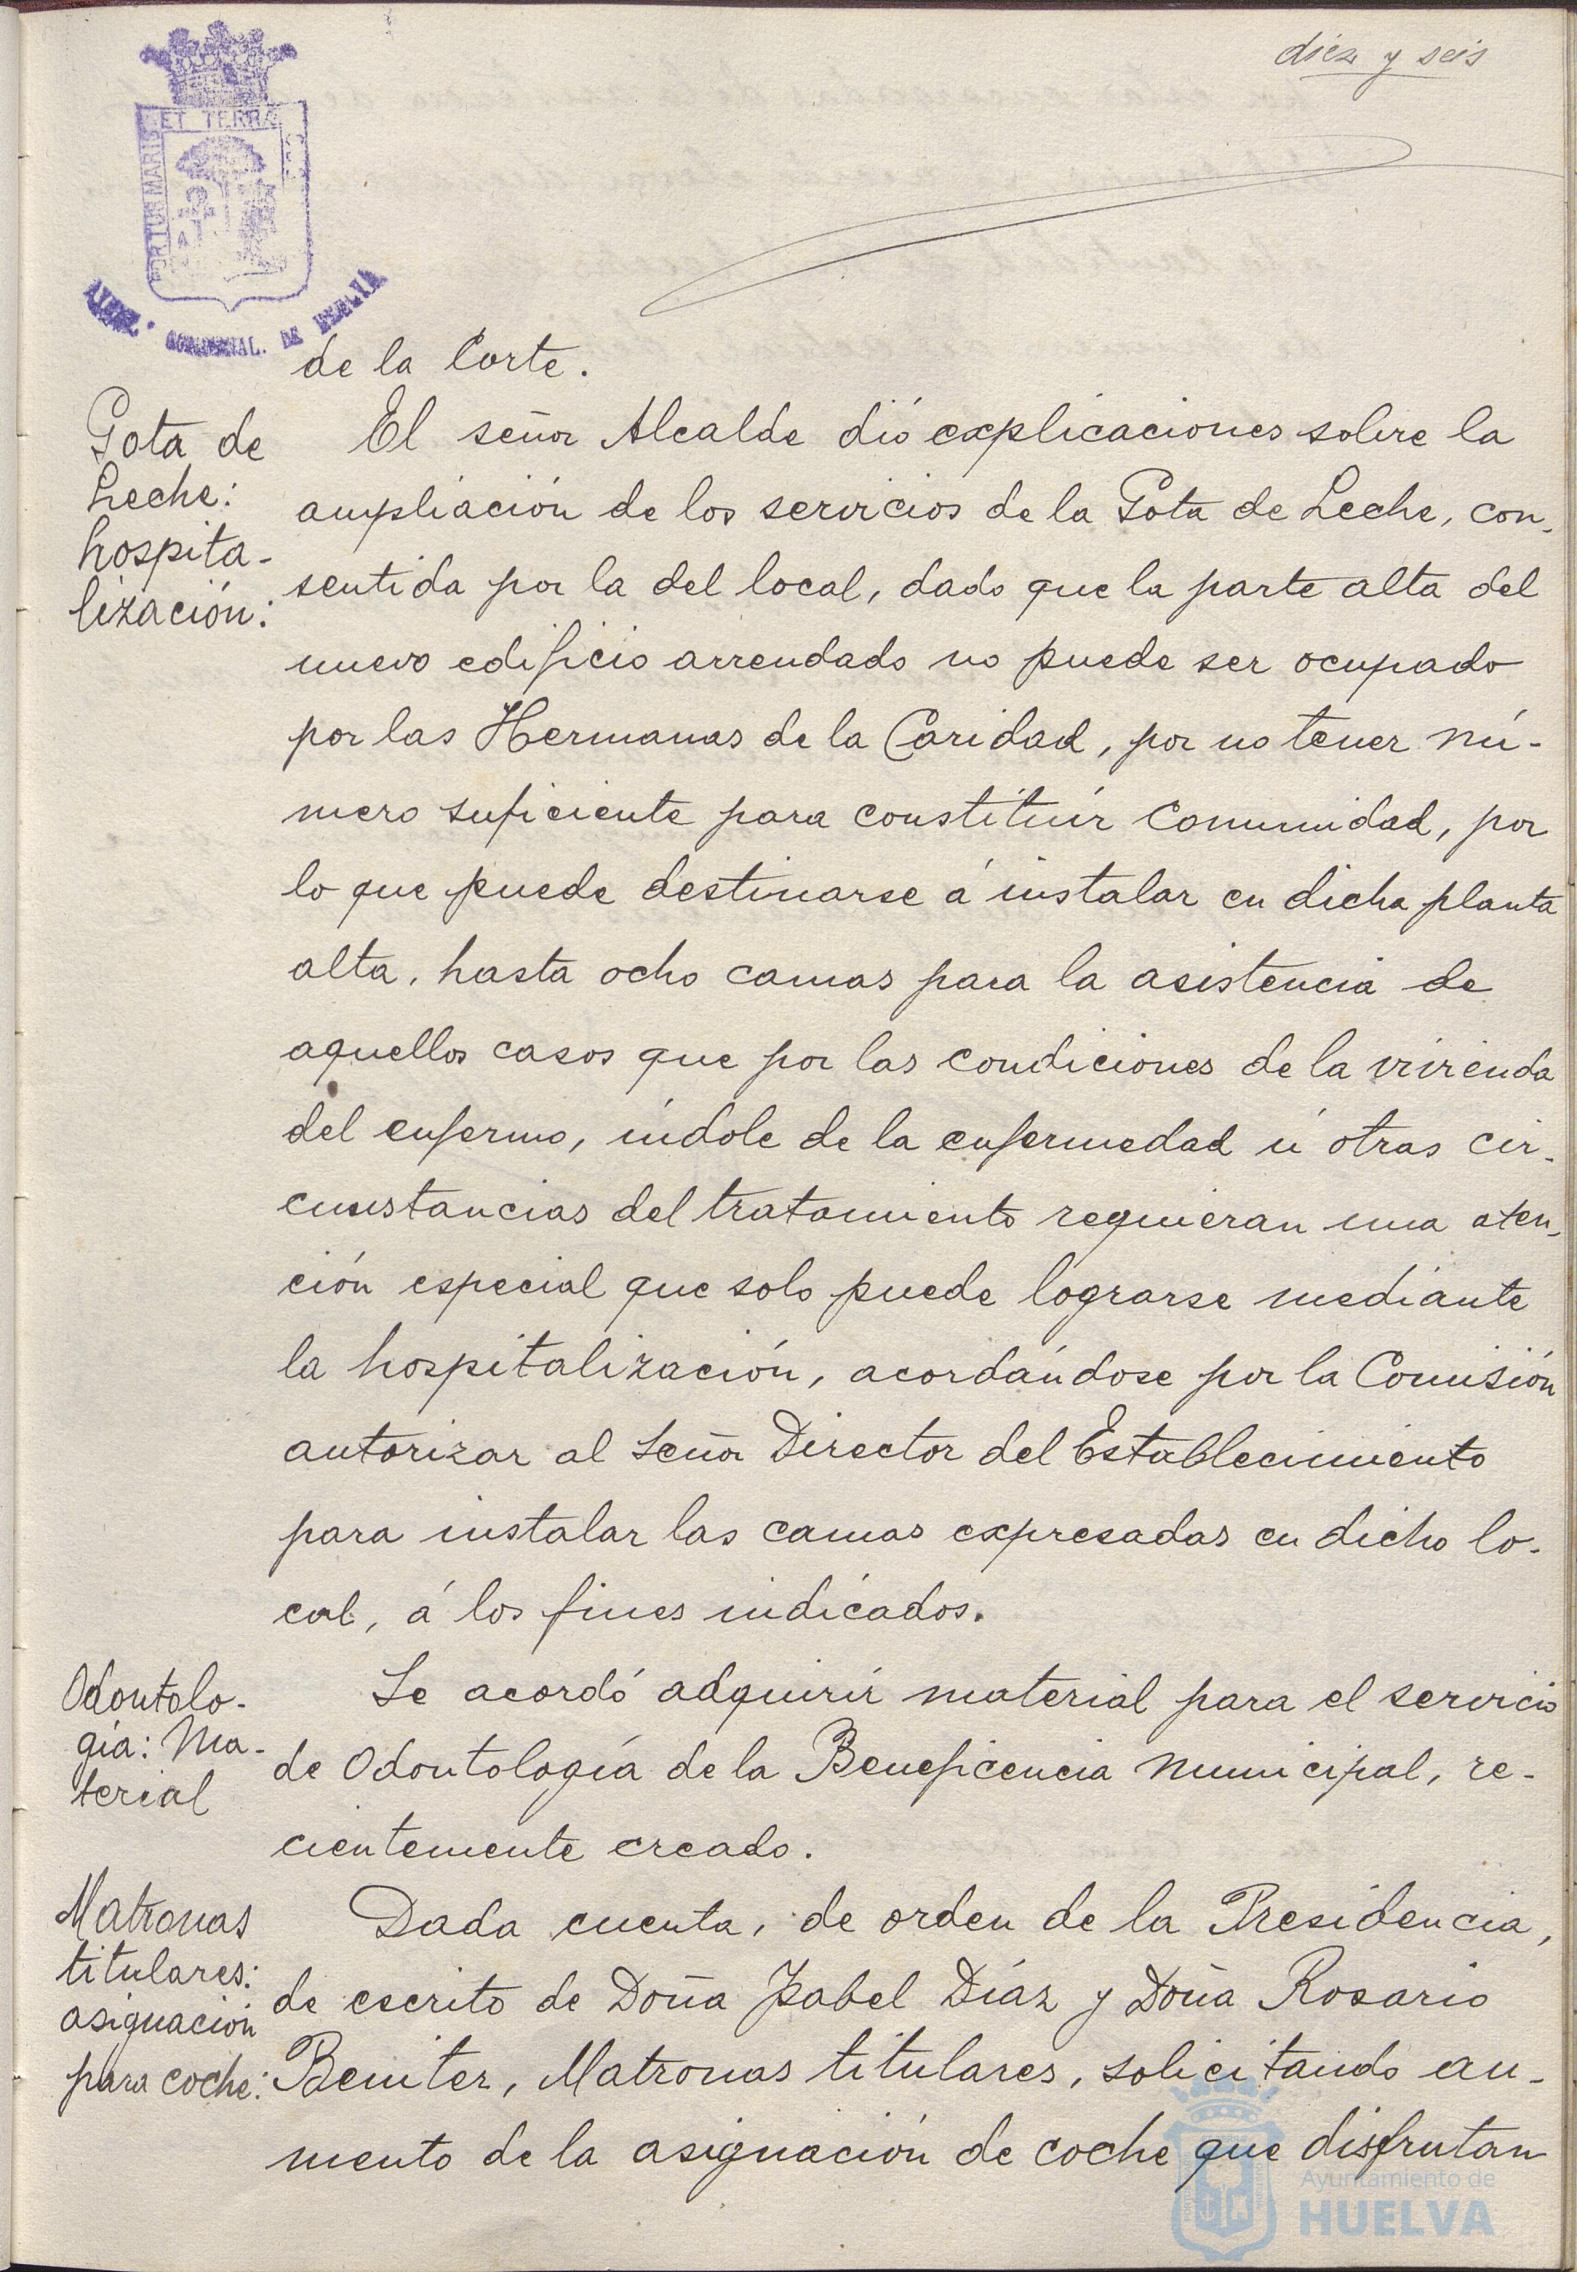 diez y seis
ET TERRÆ
PORTUS MARIS
DE HUELVA
de la Corte.
Gota de
Leche:
hospita-
lización:
El señor Alcalde dió explicaciones sobre la
ampliación de los servicios de la Gota de Leche, con-
sentida por la del local, dado que la parte alta del
nuevo edificio arrendado no puede ser ocupado
por las Hermanas de la Caridad, por no tener nú-
mero suficiente para constituír Comunidad, por
lo que puede destinarse á instalar en dicha planta
alta, hasta ocho camas para la asistencia de
aquellos casos que por las condiciones de la vivienda
del enfermo, índole de la enfermedad ú otras cir-
cunstancias del tratamiento requieran una aten-
ción especial que solo puede lograrse mediante
la hospitalización, acordándose por la Comisión
autorizar al Señor Director del Establecimiento
para instalar las camas expresadas en dicho lo-
cal, á los fines indicados.
Odontolo-
gía: Ma-
terial
Se acordó adquirír material para el servicio
de Odontología de la Beneficencia Municipal, re-
cientemente creado.
Matronas
titulares:
asignación
para coche:
Dada cuenta, de orden de la Presidencia,
de escrito de Doña Isabel Díaz y Doña Rosario
Benitez, Matronas titulares, solicitando au-
mento de la asignación de coche que disfrutan
Ayuntamiento de
HUELVA